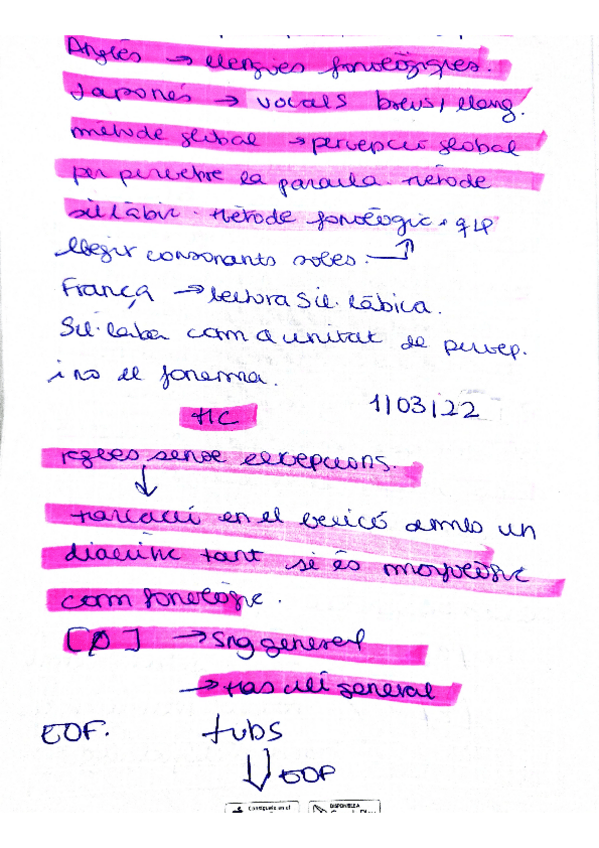 Anglès → llengües fonològiques.
Japonès → vocals breus / llarg.
mètode global → percepció global
per percebre la paraula. Mètode
sil·làbic. Mètode fonològic.
llegir consonants soles.
França → lectura Sil·làbica.
Síl·laba com a unitat de percep.
i no el fonema.
1/03/22
MC
regles sense excepcions.
↓
Marcació en el lexicó amb un
diacrític tant si és morfològic
com fonològic.
[Ø] → Sing general
→ Masculí general
EOF. tubs
⇓ EOF
Consíguelo en el
DISPONIBLE A